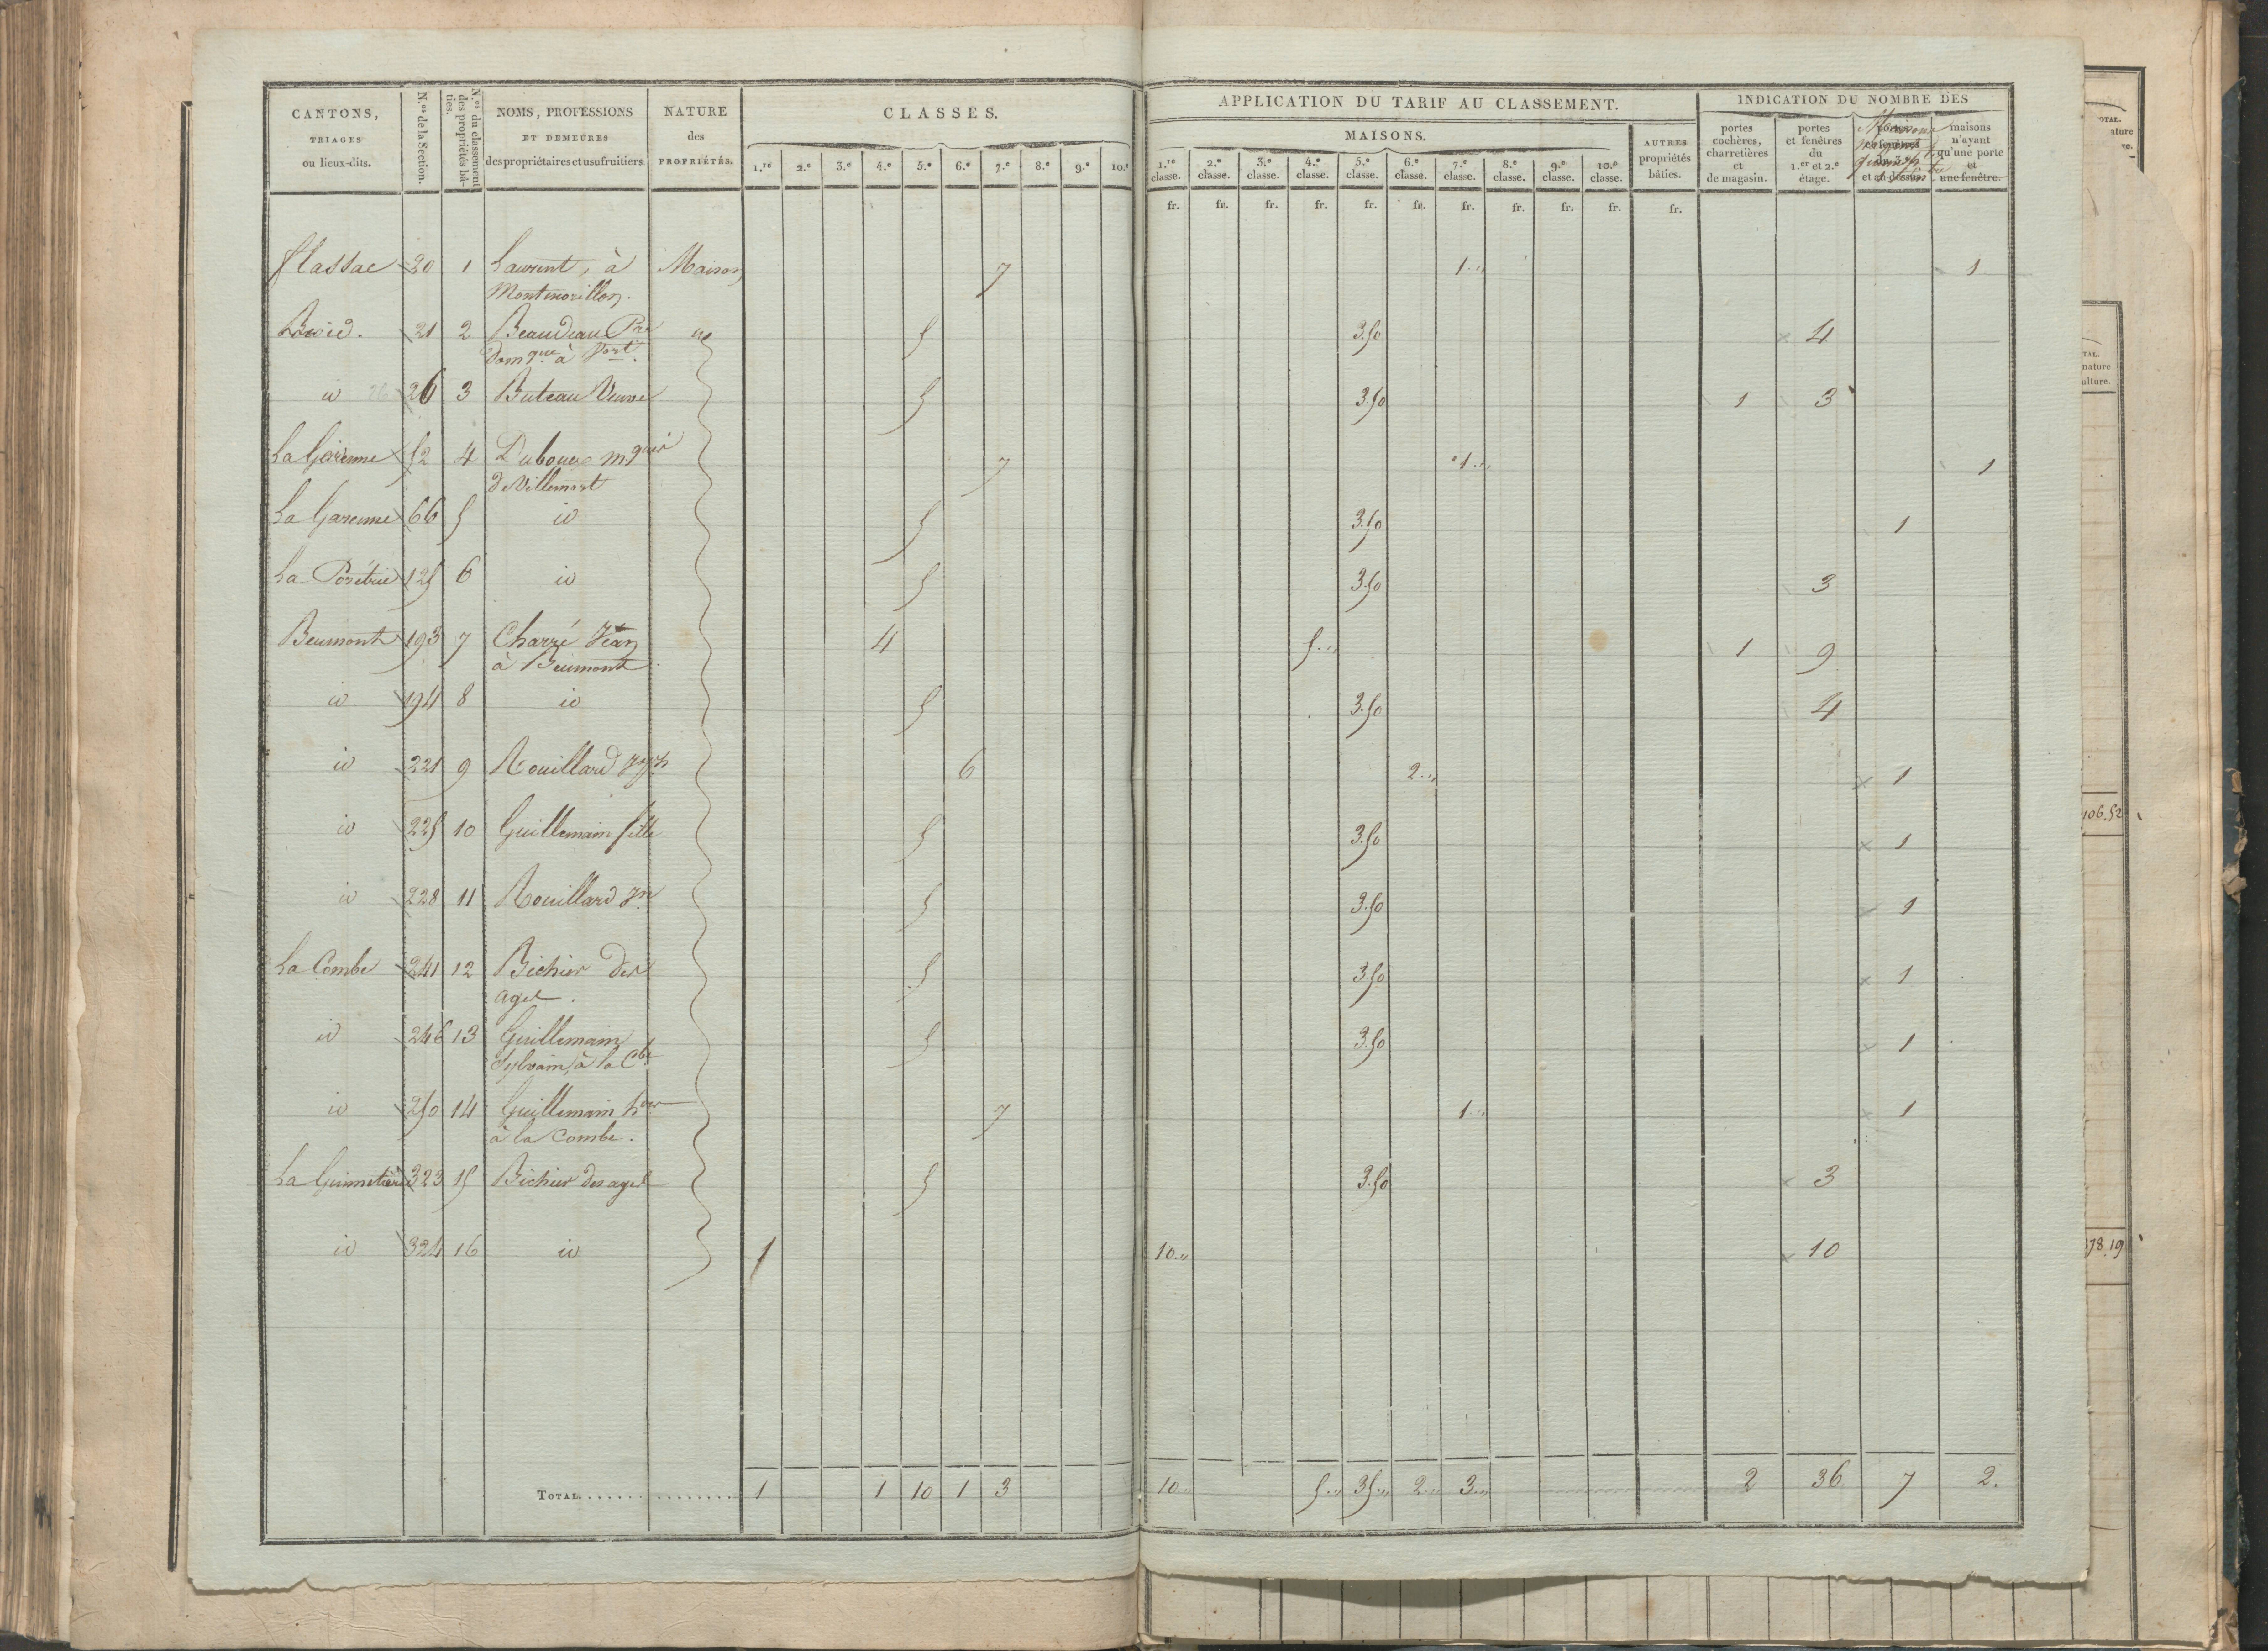 CANTONS,
TRIAGES
ou lieux-dits.
N.os de la Section.
N.os du classement des propriétés bâties.
NOMS, PROFESSIONS
ET DEMEURES
des propriétaires et usufruitiers.
NATURE
des
PROPRIÉTÉS.
CLASSES.
1.re 2.e 3.e 4.e 5.e 6.e 7.e 8.e 9.e 10.e
APPLICATION DU TARIF AU CLASSEMENT.
MAISONS.
1.re classe. 2.e classe. 3.e classe. 4.e classe. 5.e classe. 6.e classe. 7.e classe. 8.e classe. 9.e classe. 10.e classe.
AUTRES
propriétés
bâties.
INDICATION DU NOMBRE DES
portes
cochères,
charretières
et
de magasin.
portes
et fenêtres
du
1.er et 2.e
étage.
Maisons
et au-dessus.
maisons
n'ayant
qu'une porte
et
une fenêtre.
fr. fr. fr. fr. fr. fr. fr. fr. fr. fr. fr.
flassac 20 1 Laurent, à Maison 7 1.. 1
Montmorillon.
21 2 Beaudeau 5 3.50 4
Domque à
id 26 3 Buteau Veuve 5 3.50 1 3
La Garenne 52 4 Dubouex mquis 7 1.. 1
de Villemort
La Garenne 66 5 id 5 3.50 1
La 125 6 id 5 3.50 3
Beumont 193 7 Charré Jean 4 5.. 1 9
à Beumont
id 194 8 id 5 3.50 4
id 221 9 Rouillard Jph 6 2.. 1
id 225 10 Guillemain fille 5 3.50 1
id 228 11 Rouillard Jn 5 3.50 1
La Combe 241 12 Bichier des 5 3.50 1
ages.
id 246 13 Guillemain 5 3.50 1
Sylvain, à la Cbe
id 250 14 Guillemain 7 1.. 1
à la Combe.
La Guimetière 323 15 Bichier des ages 5 3.50 3
id 324 16 id 1 10.. 10
TOTAL 1 1 10 1 3 10.. 5.. 35.. 2.. 3.. 2 36 7 2.
nature
106.52
378.19